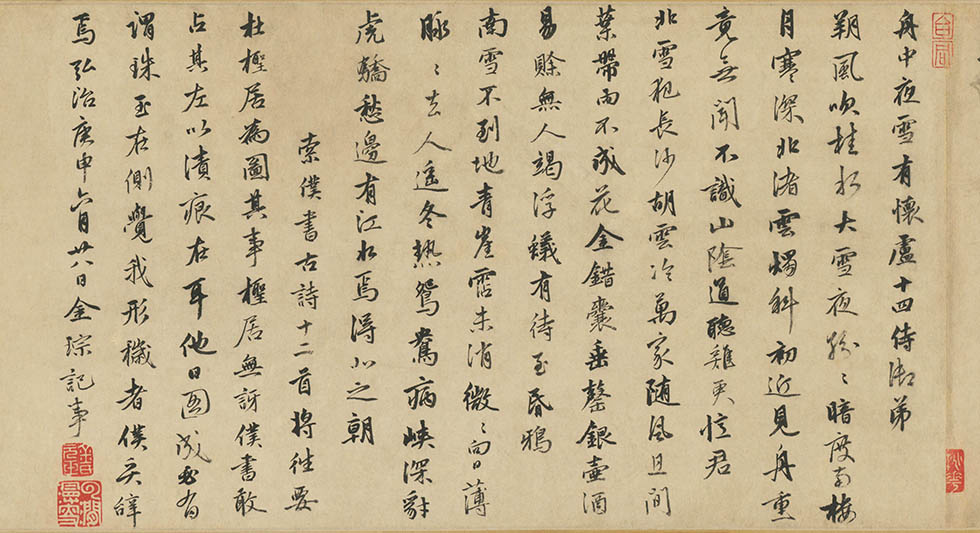 舟中夜雪有懷盧十四侍御弟
朔風吹桂水大雪夜紛〻暗度南樓
月寒深北渚雲燭斜初近見舟重
竟無聞不識山陰道聽雞更憶君
北雪犯長沙胡雲冷萬家随風且間
葉帶雨不成花金錯囊垂罄銀壺酒
易賒無人竭浮蟻有待至昏鴉
南雪不到地青崖霑未消微〻向日薄
脉〻去人遥冬熱鴛鴦病峽深豺
虎驕愁邊有江水焉得北之朝
索僕書古詩十二首将往要
杜檉居為圖其事檉居無訝僕書敢
占其左以漬痕在耳他日圖成必有
謂珠玉在側覺我形穢者僕奚辭
焉弘治庚申六月廿八日金琮記事